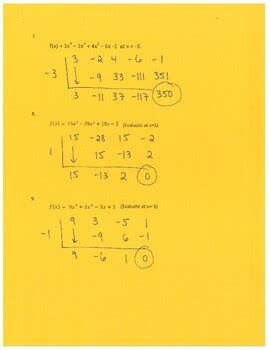 7.
f(x) = 3x⁴ - 2x³ + 4x² - 6x - 1 at x = -3.
3 -2 4 -6 -1
-3 ↓ -9 33 -111 351
3 -11 37 -117 350
8.
f(x) = 15x³ - 28x² + 15x - 2 (Evaluate at x=1)
15 -28 15 -2
1 ↓ 15 -13 2
15 -13 2 0
9.
f(x) = 9x³ + 3x² - 5x + 1 (Evaluate at x=-1)
9 3 -5 1
-1 ↓ -9 6 -1
9 -6 1 0